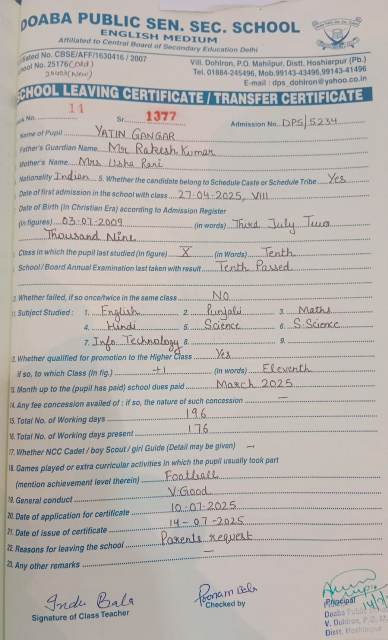 DOABA PUBLIC SEN. SEC. SCHOOL
ENGLISH MEDIUM
Affiliated to Central Board of Secondary Education Delhi
No. CBSE/AFF/1630416 / 2007
Vill. Dohlron, P.O. Mahilpur, Distt. Hoshiarpur (Pb.)
School No. 25176 (Old)
Tel. 01884-245496, Mob.99143-43496,99143-41496
(New)
E-mail : dps_dohlron@yahoo.co.in
SCHOOL LEAVING CERTIFICATE / TRANSFER CERTIFICATE
No. 11 Sr. 1377 Admission No. DPS/5234
Name of Pupil YATIN GANGAR
Father's Guardian Name Mr Rakesh Kumar
Mother's Name Mrs Usha Rani
Nationality Indian 5. Whether the candidate belong to Schedule Caste or Schedule Tribe Yes
Date of first admission in the school with class 27-04-2025, VIII
Date of Birth (In Christian Era) according to Admission Register
(in figures) 03-07-2009 (in words) Third July Two
Thousand Nine
Class in which the pupil last studied (in figure) X (in Words) Tenth
School / Board Annual Examination last taken with result Tenth Passed
Whether failed, if so once/twice in the same class NO
Subject Studied : 1. English 2. Punjabi 3. Maths
4. Hindi 5. Science 6. S.Science
7. Info Technology 8. 9.
Whether qualified for promotion to the Higher Class Yes
if so, to which Class (In fig.) +1 (in Words) Eleventh
Month up to the (pupil has paid) school dues paid March 2025
14. Any fee concession availed of : if so, the nature of such concession —
15. Total No. of Working days 196
16. Total No. of Working days present 176
17. Whether NCC Cadet / boy Scout / girl Guide (Detail may be given) —
18. Games played or extra curricular activities in which the pupil usually took part
(mention achievement level therein) Football
19. General conduct V.Good
20. Date of application for certificate 10-07-2025
21. Date of issue of certificate 14-07-2025
22. Reasons for leaving the school Parents request
23. Any other remarks —
Indu Bala
Signature of Class Teacher
Poonam Bala
Checked by
Principal
Doaba Public
V. Dohlron, P.O.
Distt. Hoshiarpur